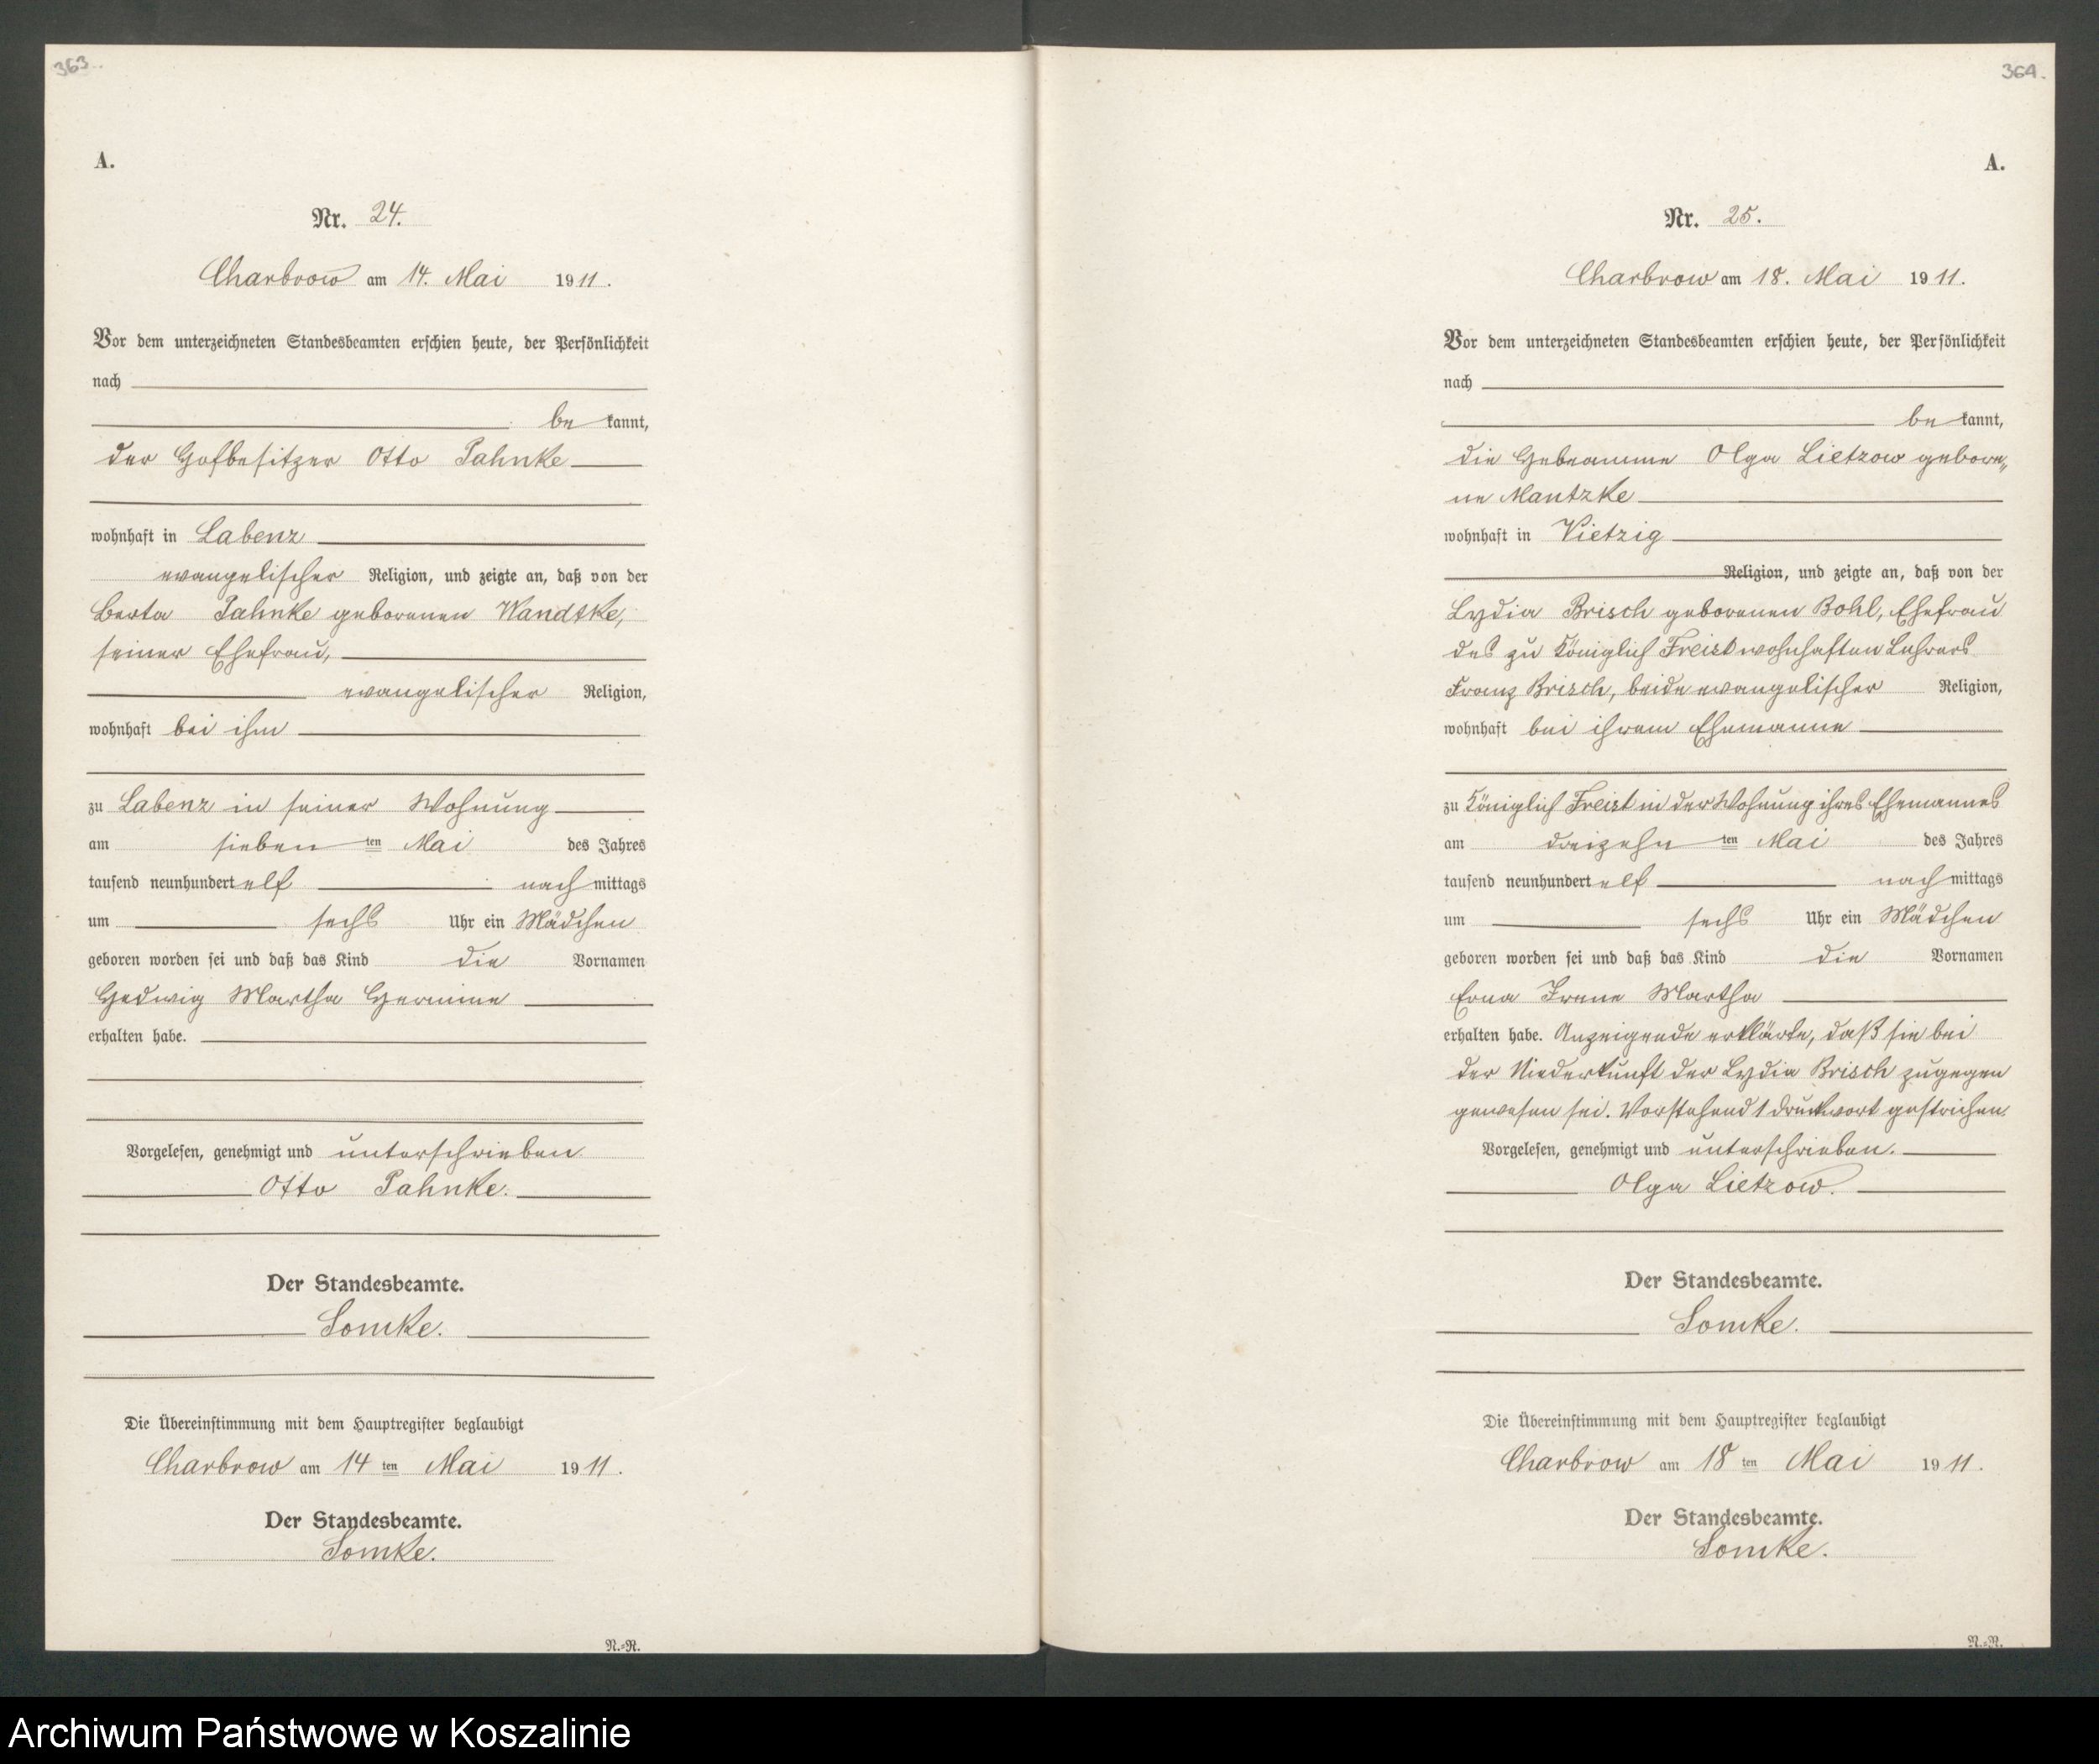 363.
A.
Nr. 24.
Charbrow am 14. Mai 1911.
Vor dem unterzeichneten Standesbeamten erschien heute, der Persönlichkeit
nach
be kannt,
der Hofbesitzer Otto Pahnke
wohnhaft in Labenz
evangelischer Religion, und zeigte an, daß von der
Berta Pahnke geborenen Wandtke,
seiner Ehefrau,
evangelischer Religion,
wohnhaft bei ihm
zu Labenz in seiner Wohnung
am sieben ten Mai des Jahres
tausend neunhundert elf nach mittags
um sechs Uhr ein Mädchen
geboren worden sei und daß das Kind die Vornamen
Hedwig Martha Hermine
erhalten habe.
Vorgelesen, genehmigt und unterschrieben.
Otto Pahnke.
Der Standesbeamte.
Lomke.
Die Übereinstimmung mit dem Hauptregister beglaubigt
Charbrow am 14 ten Mai 1911.
Der Standesbeamte.
Lomke.
N.=R.
364.
A.
Nr. 25.
Charbrow am 18. Mai 1911.
Vor dem unterzeichneten Standesbeamten erschien heute, der Persönlichkeit
nach
be kannt,
die Hebeamme Olga Lietzow gebore„
ne Mantzke
wohnhaft in Vietzig
Religion, und zeigte an, daß von der
Lydia Brisch geborenen Bohl, Ehefrau
des zu Königlich Freist wohnhaften Lehrers
Franz Brisch, beide evangelischer Religion,
wohnhaft bei ihrem Ehemanne
zu Königlich Freist in der Wohnung ihres Ehemannes
am dreizehn ten Mai des Jahres
tausend neunhundert elf nach mittags
um sechs Uhr ein Mädchen
geboren worden sei und daß das Kind die Vornamen
Erna Irene Martha
erhalten habe. Anzeigende erklärte, daß sie bei
der Niederkunft der Lydia Brisch zugegen
gewesen sei. Vorstehend 1 Druckwort gestrichen.
Vorgelesen, genehmigt und unterschrieben.
Olga Lietzow.
Der Standesbeamte.
Lomke.
Die Übereinstimmung mit dem Hauptregister beglaubigt
Charbrow am 18 ten Mai 1911.
Der Standesbeamte.
Lomke.
N.=R.
Archiwum Państwowe w Koszalinie